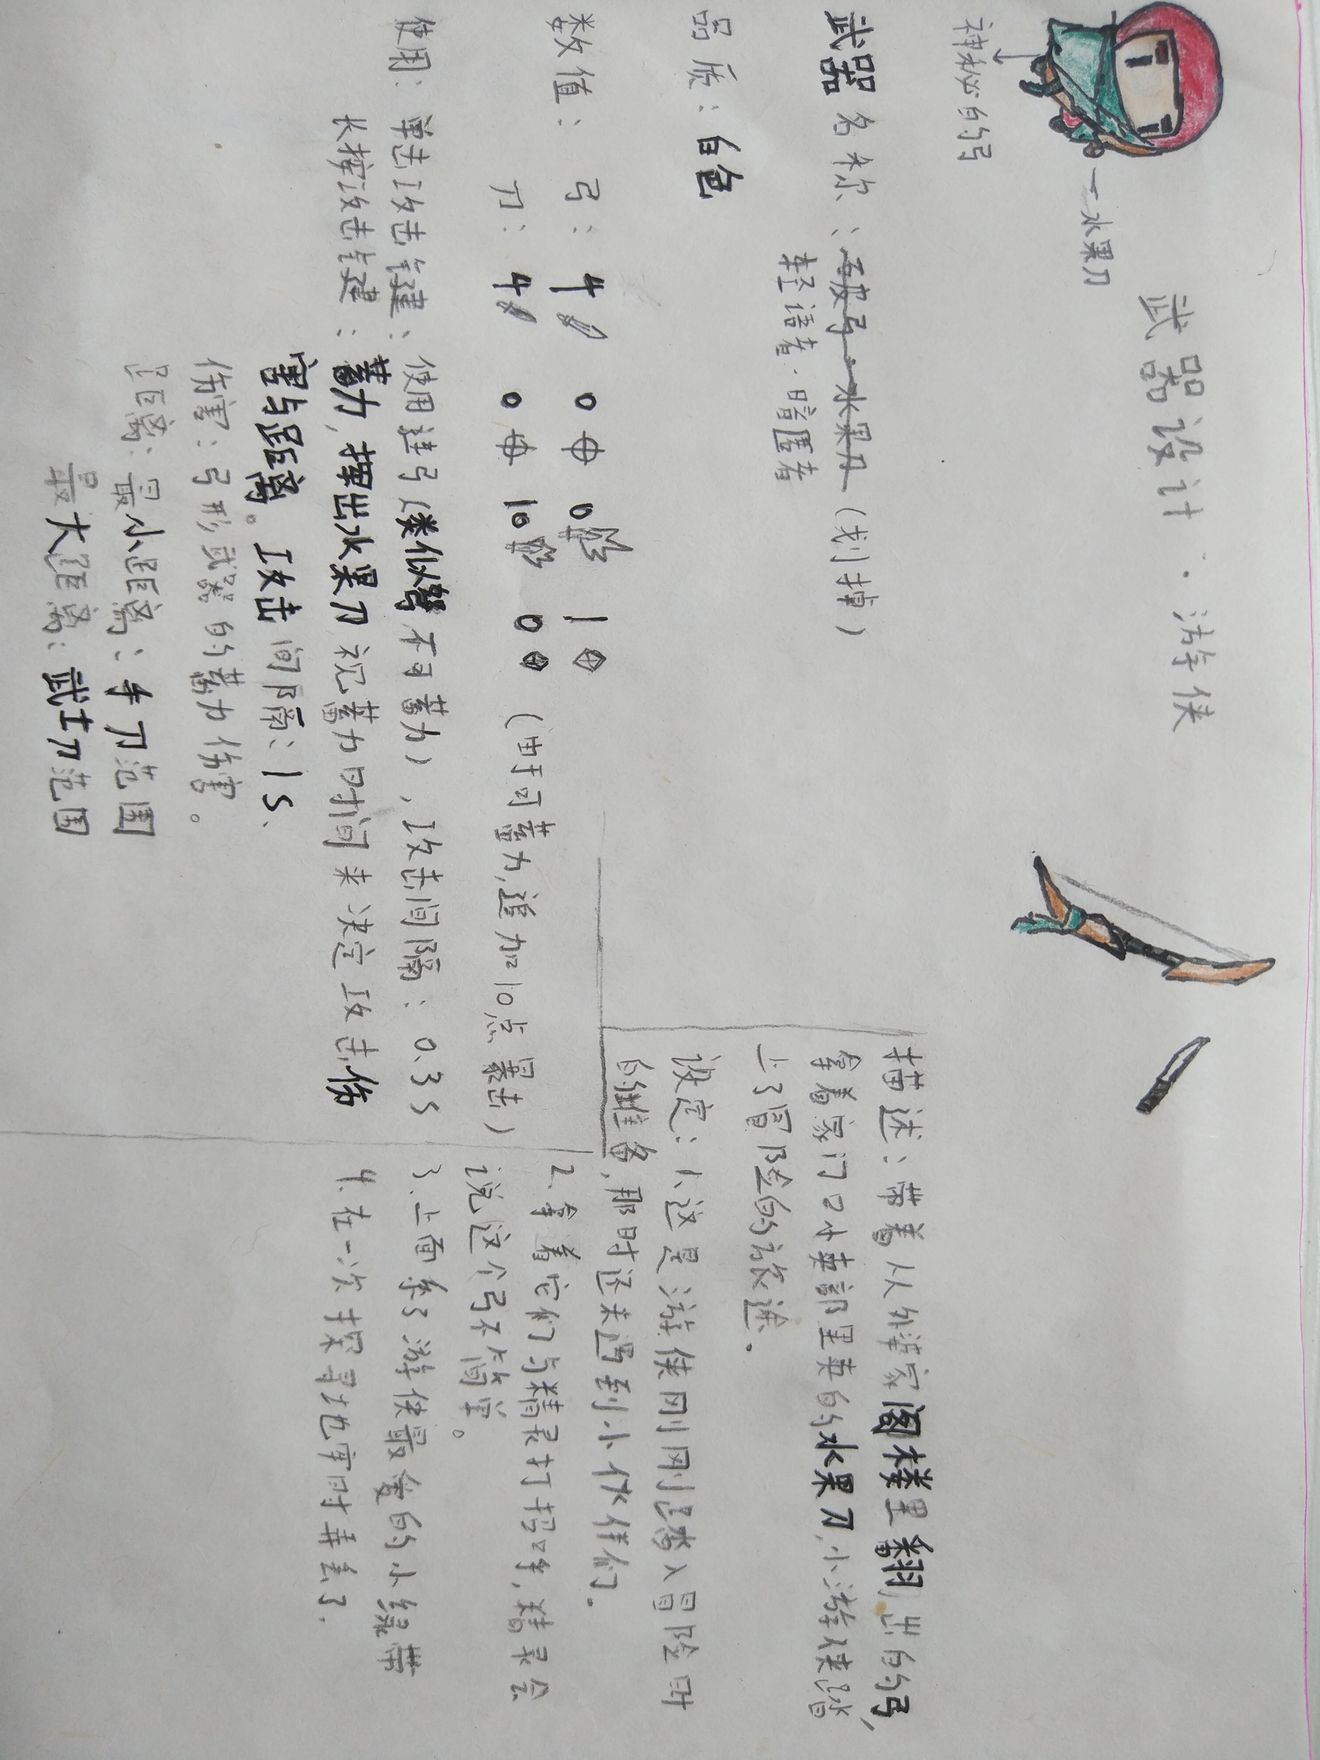 武器设计·游侠
神秘的弓
水果刀
武器名称：破弓·水果刀（划掉）
轻语者·暗匿者
品质：白色
数值：弓：4 0 0 1
刀：4 0 10 0（由于可蓄力,追加10点暴击）
使用：单击攻击键：使用连弓（类似弩,不可蓄力），攻击间隔：0.3s
长按攻击键：蓄力，挥出水果刀视蓄力时间来决定攻击伤
害与距离。攻击间隔：1s、
伤害：弓形武器的蓄力伤害。
距离：最小距离：手刀范围
最大距离：武士刀范围
描述：带着从外婆家阁楼里翻出的弓，
拿着家门口小卖部里卖的水果刀,小游侠踏
上了冒险的旅途。
设定：1、这是游侠刚刚踏入冒险时
的准备,那时还未遇到小伙伴们。
2、拿着它们与精灵打招呼,精灵会
说这个弓不简单。
3、上面系了游侠最爱的小绿带
4、在一次探寻地牢时弄丢了.